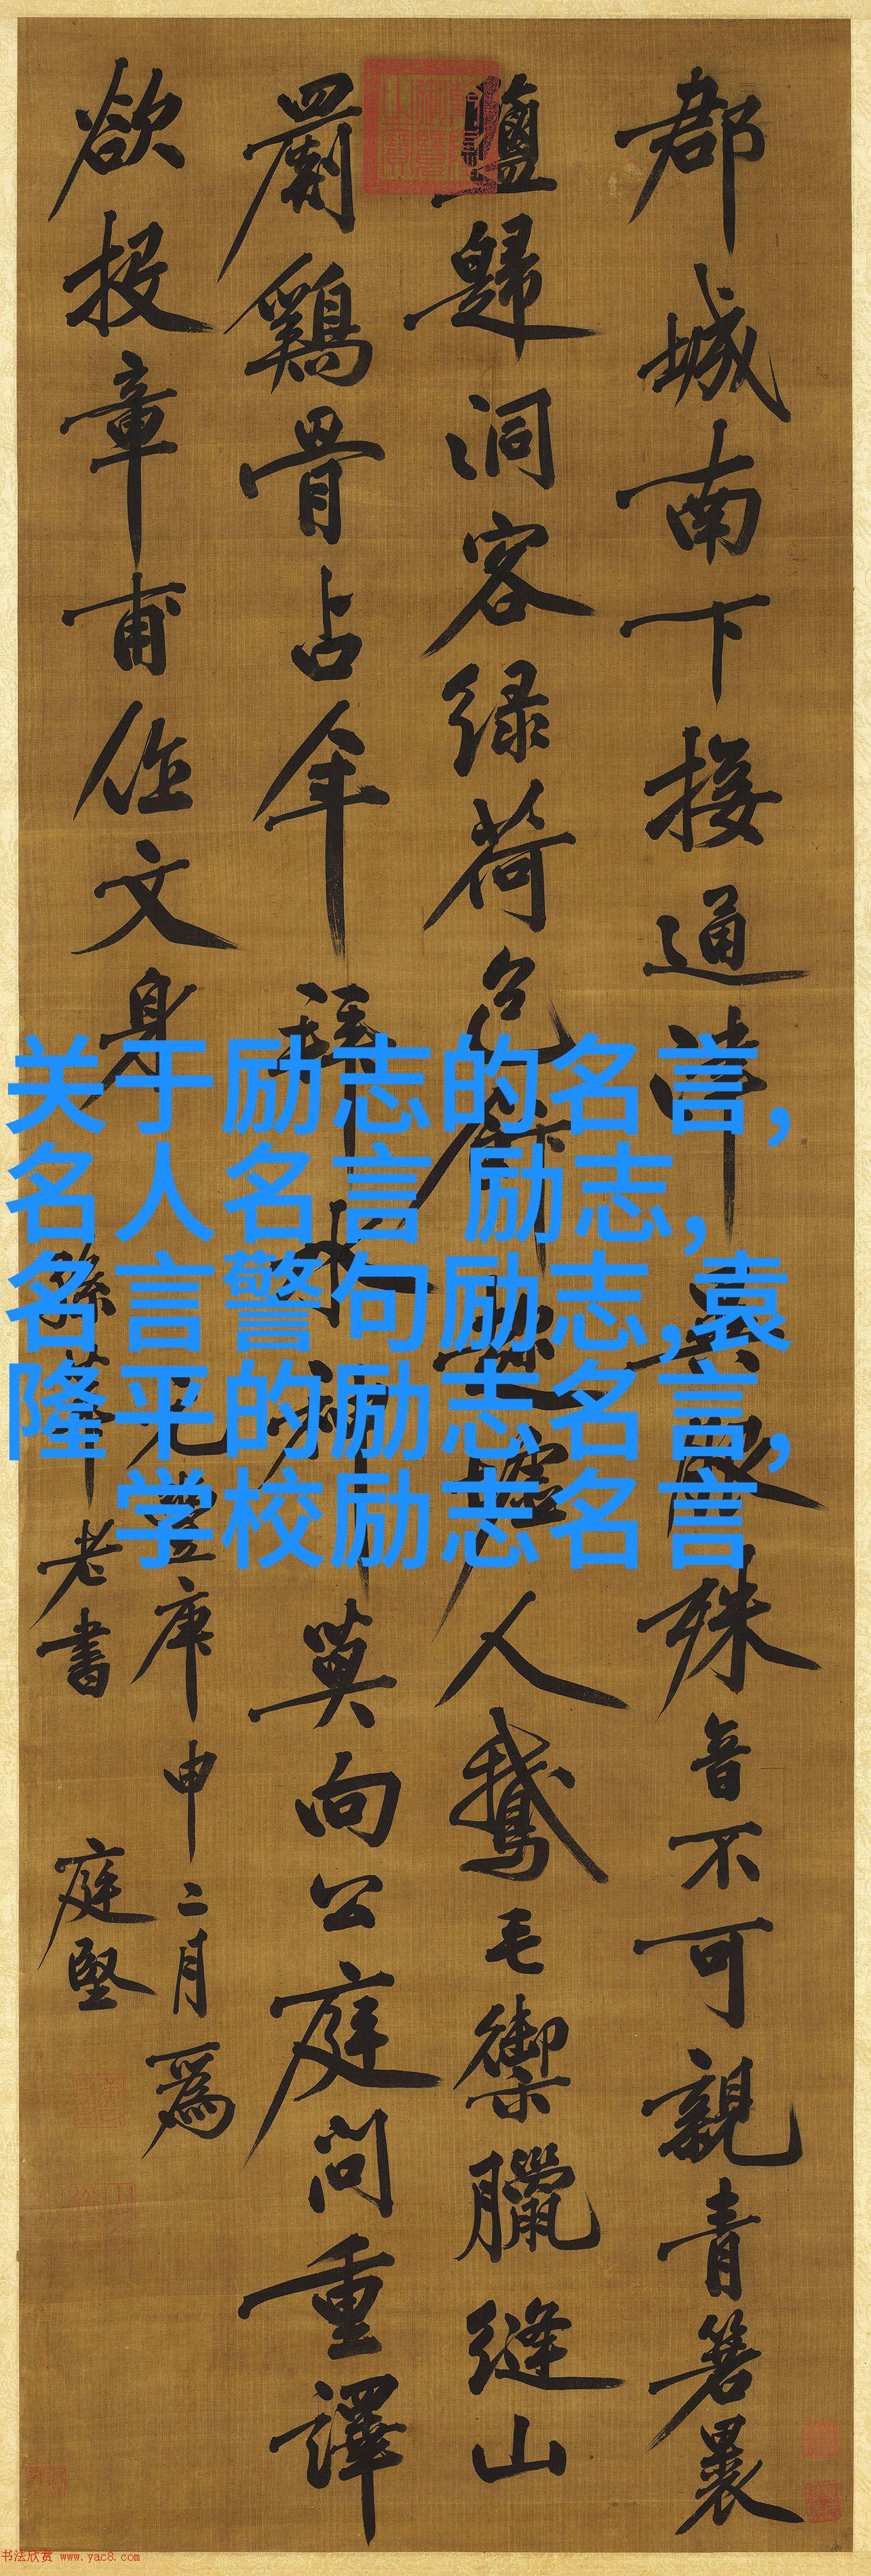 郡城南下接通津異服殊音不可親青箬裹
鹽歸洞客緑荷包飯趁虛人鵝毛御臘縫山
罽鷄骨占年拜水神莫向公庭問重譯
欲投章甫作文身
元豐庚申二月爲
孫莘老書 庭堅
关于励志的名言,
名人名言 励志,
名言警句励志,袁
隆平的励志名言,
学校励志名言
书法欣赏 www.yac8.com